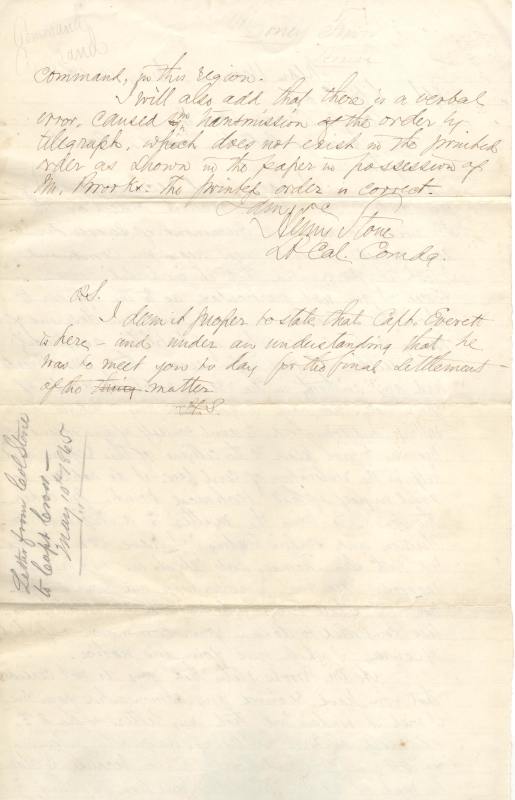 command, in this region.
I will also add that there is a verbal
error, caused in transmission of the order by
telegraph, which does not exist in the printed
order as shown in the paper in possession of
Mr. Brooks: the printed order is correct.
I am &c
Henry Stone
Lt Col. Comdg.
P.S.
I deem it proper to state that Capt. Everett
is here – and under an understanding that he
was to meet you to day for the final settlement
of the thing matter
H.S.
Letter from Col Stone
to Capt Cross –
May 10th 1865